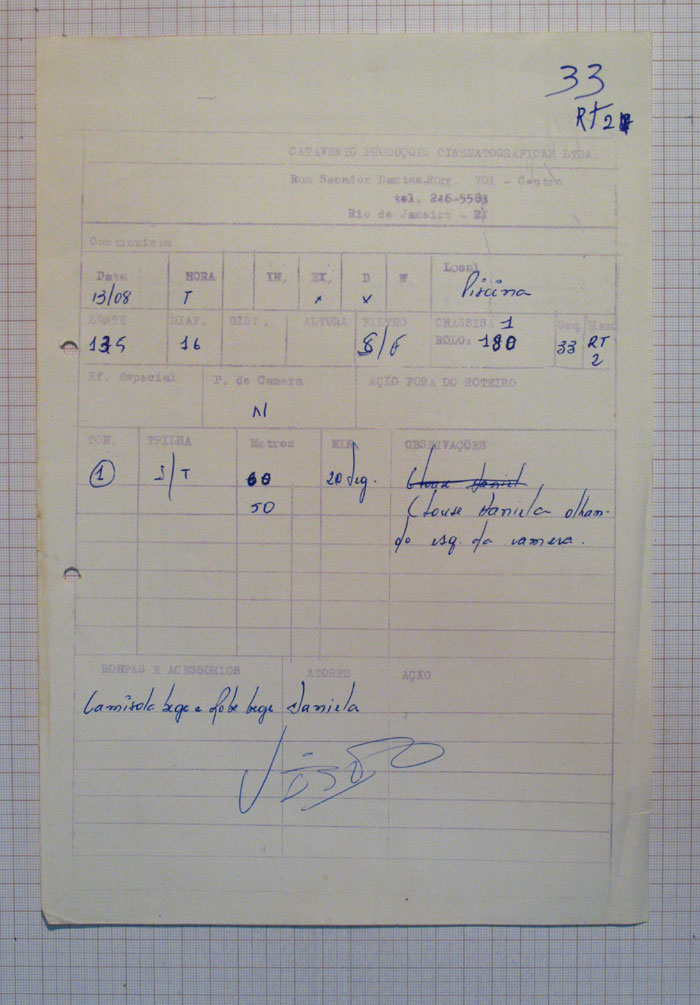 33
RT 2
CATAVENTO PRODUÇÕES CINEMATOGRAFICAS LTDA.
Rua Senador Dantas, 20 gr. 701 - Centro
tel. 246-5583
Rio de Janeiro - RJ
Continuista
Data HORA IN. EX. D N Local
13/08 T x x Piscina
LENTE DIAF. DIST. ALTURA FILTRO CHASSIS: 1 Seq.
135 16 S/F ROLO: 180 33 RT 2
Ef. Especial P. de Camera AÇÃO FORA DO ROTEIRO
N
TOM. TRILHA Metros MIN. OBSERVAÇÕES
1 S/T 60 20 seg. Clouse Daniel
50 Clouse Daniela olhan-
do esq. da camera.
ROUPAS E ACESSORIOS ATORES AÇÃO
Camisola bege e Robe bege Daniela